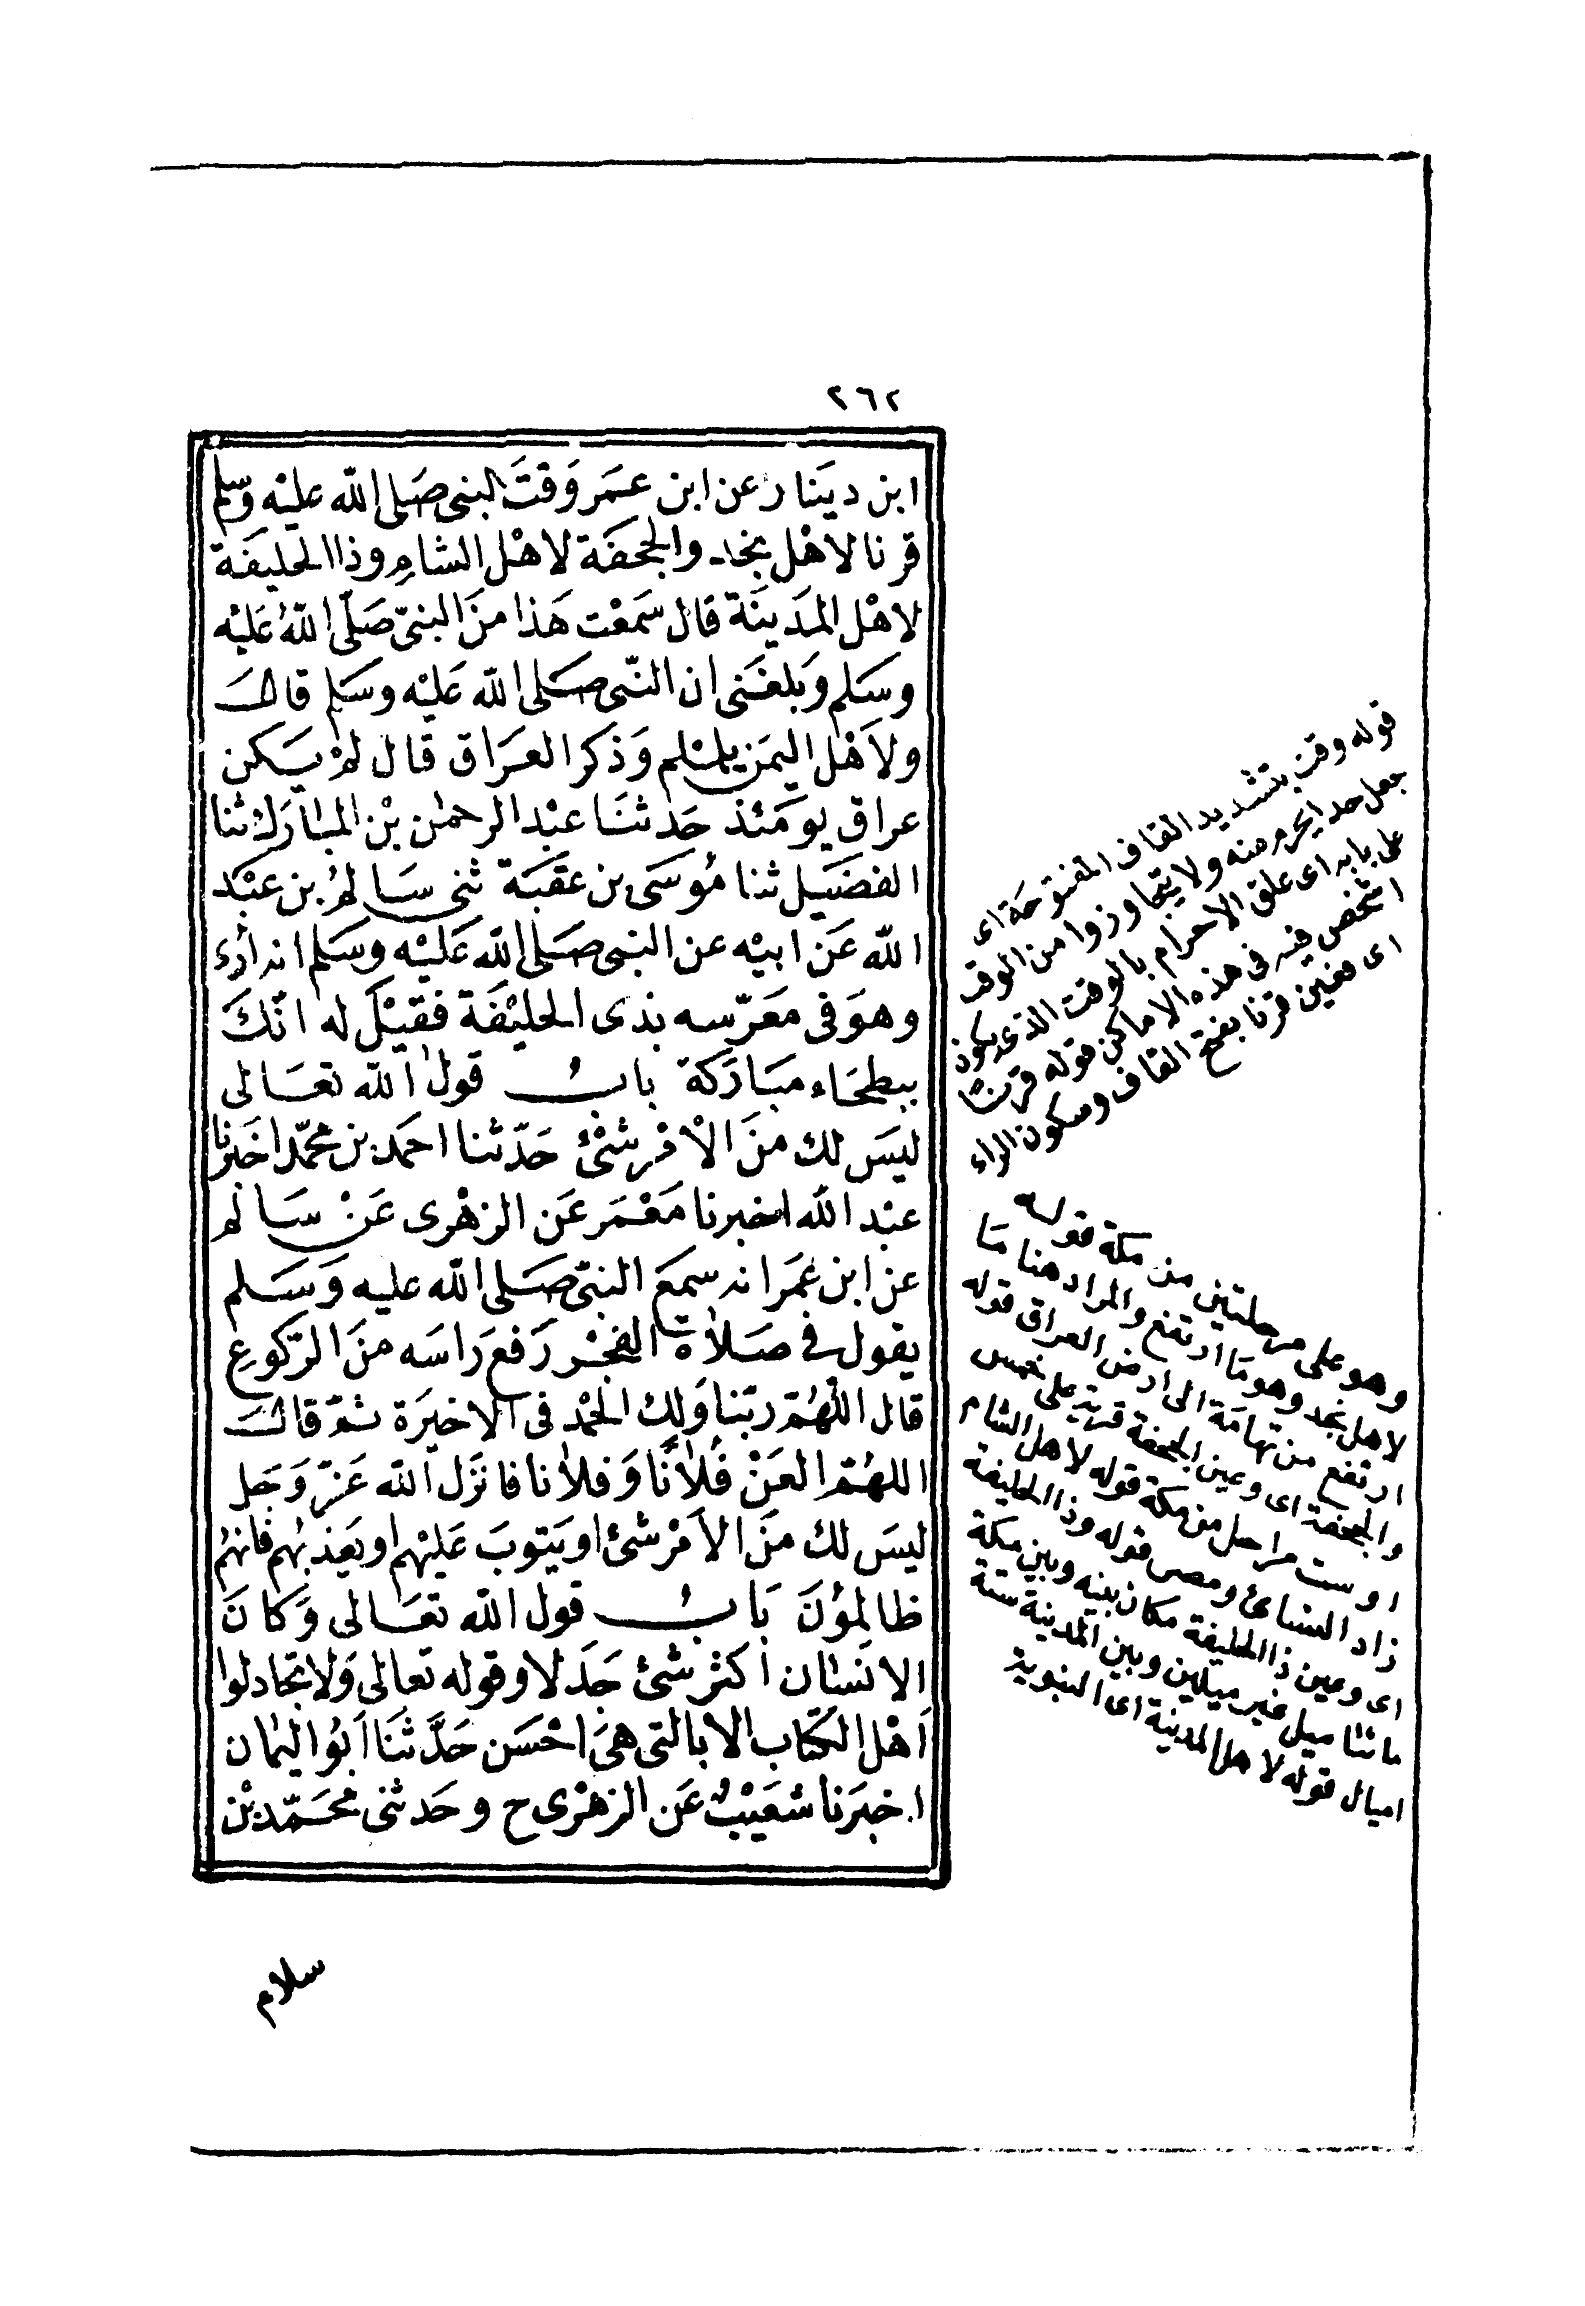 ٢٦٢
ابن دينار عن ابن عمر وقت النبى صلى الله عليه وسلم
قرنا لاهل نجد والجحفة لاهل الشام وذا الحليفة
لاهل المدينة قال سمعت هذا من النبى صلى الله عليه
وسلم وبلغنى ان النبى صلى الله عليه وسلم قال
ولاهل اليمن يلملم وذكر العراق قال لم يكن
عراق يومئذ حدثنا عبد الرحمٰن بن المبارك ثنا
الفضيل ثنا موسى بن عقبة ثنى سالم بن عبد
الله عن ابيه عن النبى صلى الله عليه وسلم انه أرى
وهو فى معرّسه بذى الحليفة فقيل له انك
ببطحاء مباركة باب قول الله تعالى
ليس لك من الأمر شئ حدّثنا احمد بن محمّد اخبرنا
عبد الله اخبرنا معمر عن الزهرى عن سالم
عن ابن عمر انه سمع النبى صلى الله عليه وسلم
يقول فى صلاة الفجر رفع راسه من الركوع
قال اللهم ربنا ولك الحمد فى الاخيرة ثم قال
اللهم العن فلانا وفلانا فانزل الله عز وجل
ليس لك من الأمر شئ او يتوب عليهم او يعذبهم فانهم
ظالمون باب قول الله تعالى وكان
الانسان اكثر شئ جدلا وقوله تعالى ولا تجادلوا
اهل الكتاب الا بالتى هى احسن حدثنا ابو اليمان
اخبرنا شعيب عن الزهرى ح وحدثنى محمد بن
سلام
قوله وقت بتشديد القاف المفتوحة اى
جعل حد ايحرم منه ولا يتجاوزوا من الوقت
على بابه اى علق الاحرام بالوقت الذى يكون
الشخص فيه فى هذه الاماكن قوله قرنا
اى معين قرنا بفتح القاف وسكون الراء
وهو على مرحلتين من مكة قوله
لاهل نجد وهو ما ارتفع والمراد هنا ما
ارتفع من تهامة الى ارض العراق قوله
والجحفة اى وعين الجحفة قرية على خمس
او ست مراحل من مكة قوله لاهل الشام
زاد النسائى ومصر قوله وذا الحليفة
اى وعين ذا الحليفة مكان بينه وبين مكة
مائتا ميل غير ميلين وبين المدينة ستة
اميال قوله لاهل المدينة اى النبوية